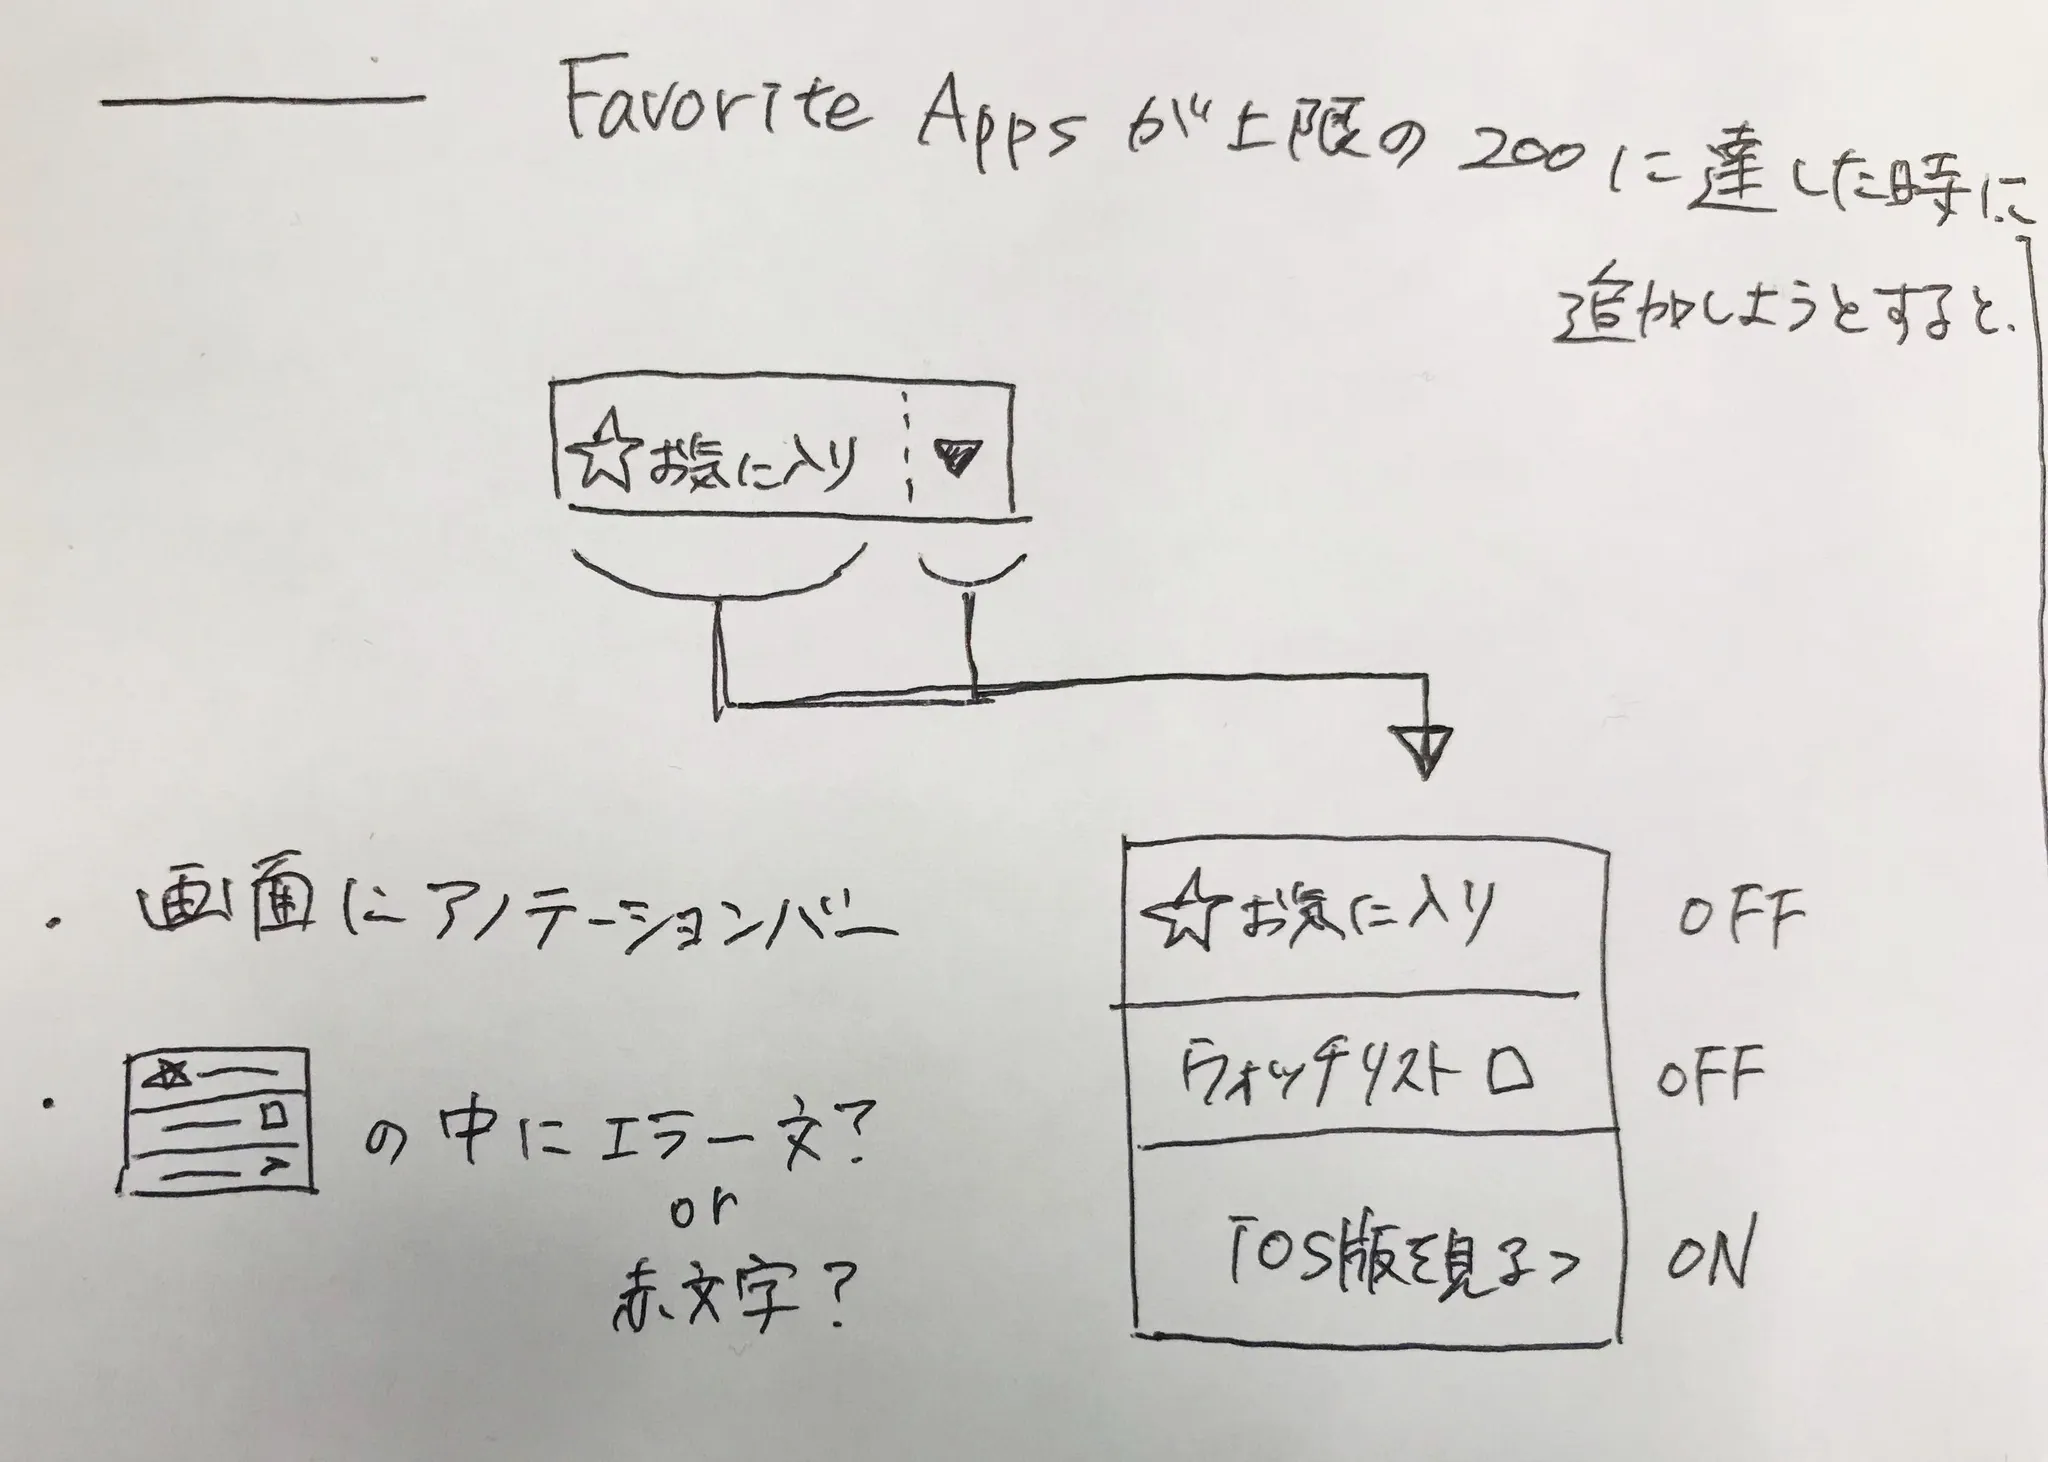 Favorite Apps が上限の 200 に達した時に
追加しようとすると、
☆お気に入り ▼
・画面にアノテーションバー
・の中にエラー文?
or
赤文字?
☆お気に入り OFF
ウォッチリスト □ OFF
iOS版を見る> ON